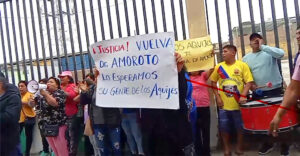 ¡JUSTICIA! VUELVA
DR. AMOROTO
LO ESPERAMOS
SU GENTE DE LOS Aquijes
LOS AQUIJES